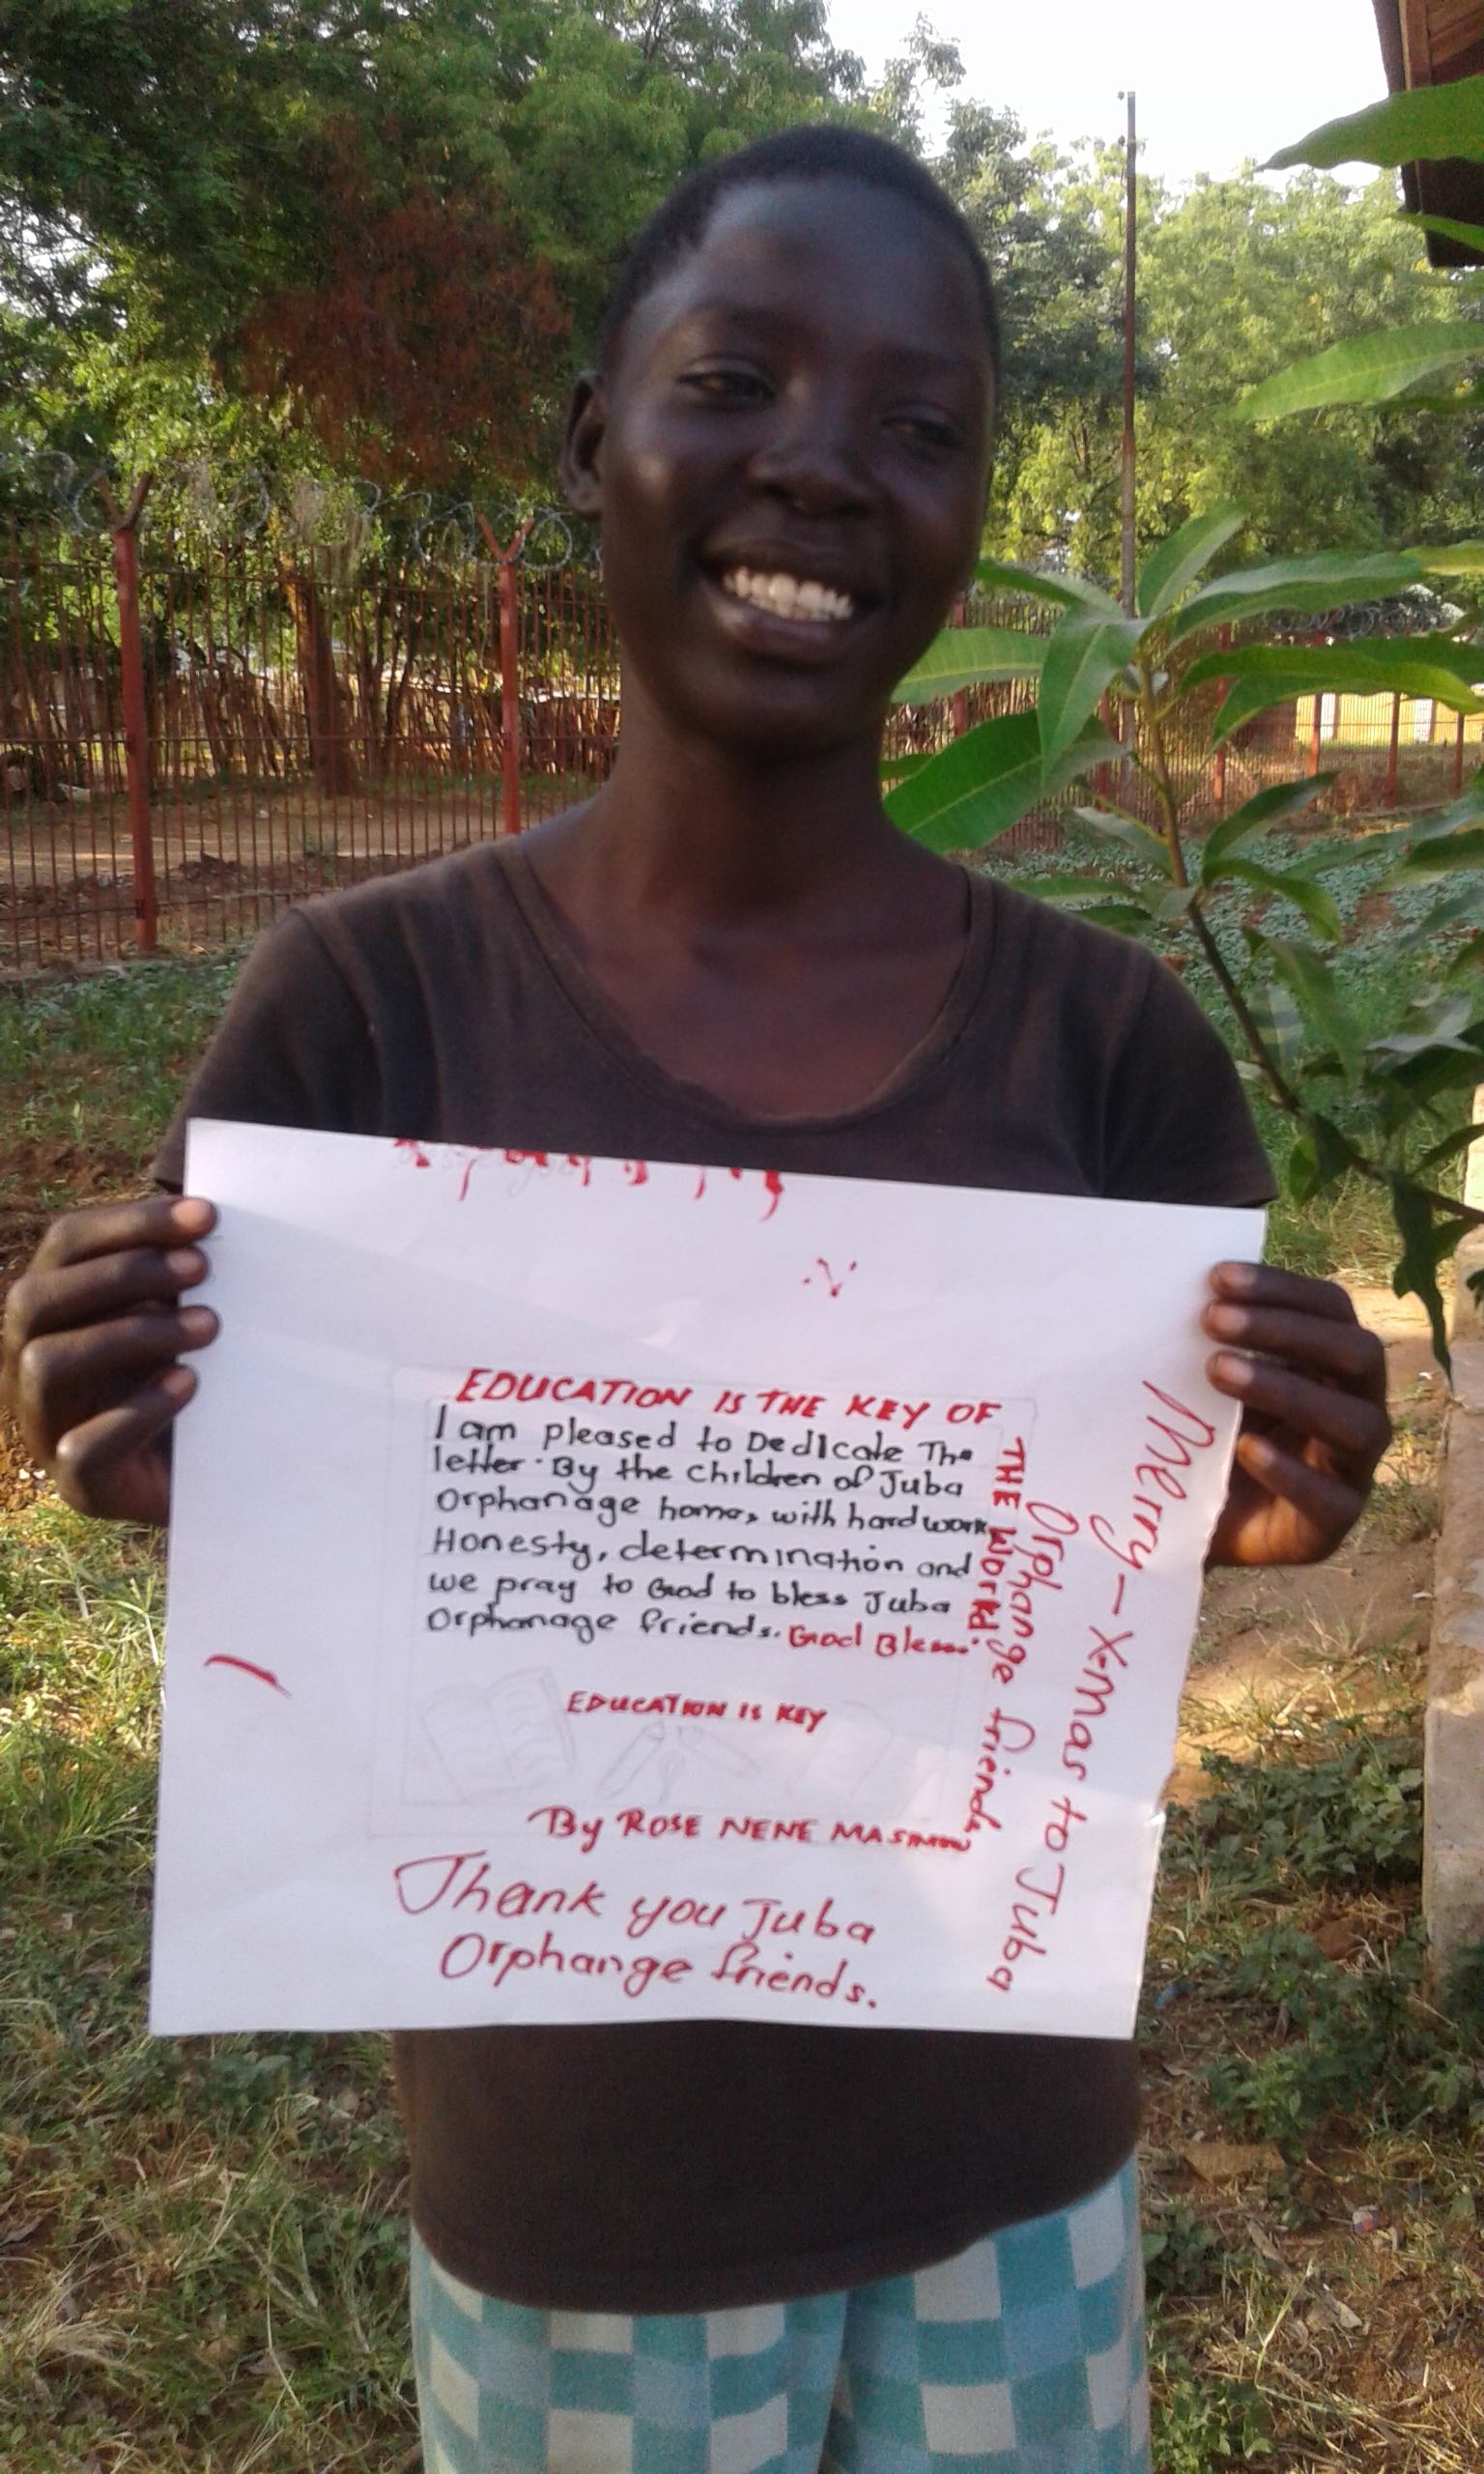 EDUCATION IS THE KEY OF
THE World.
I am pleased to Dedicate The
letter. By the children of Juba
Orphanage home, with hardwork
Honesty, determination and
we pray to God to bless Juba
Orphanage friends. God Bless.
EDUCATION IS KEY
By ROSE NENE
Thank you Juba
Orphange friends.
Merry - X-mas to Juba
Orphange friends